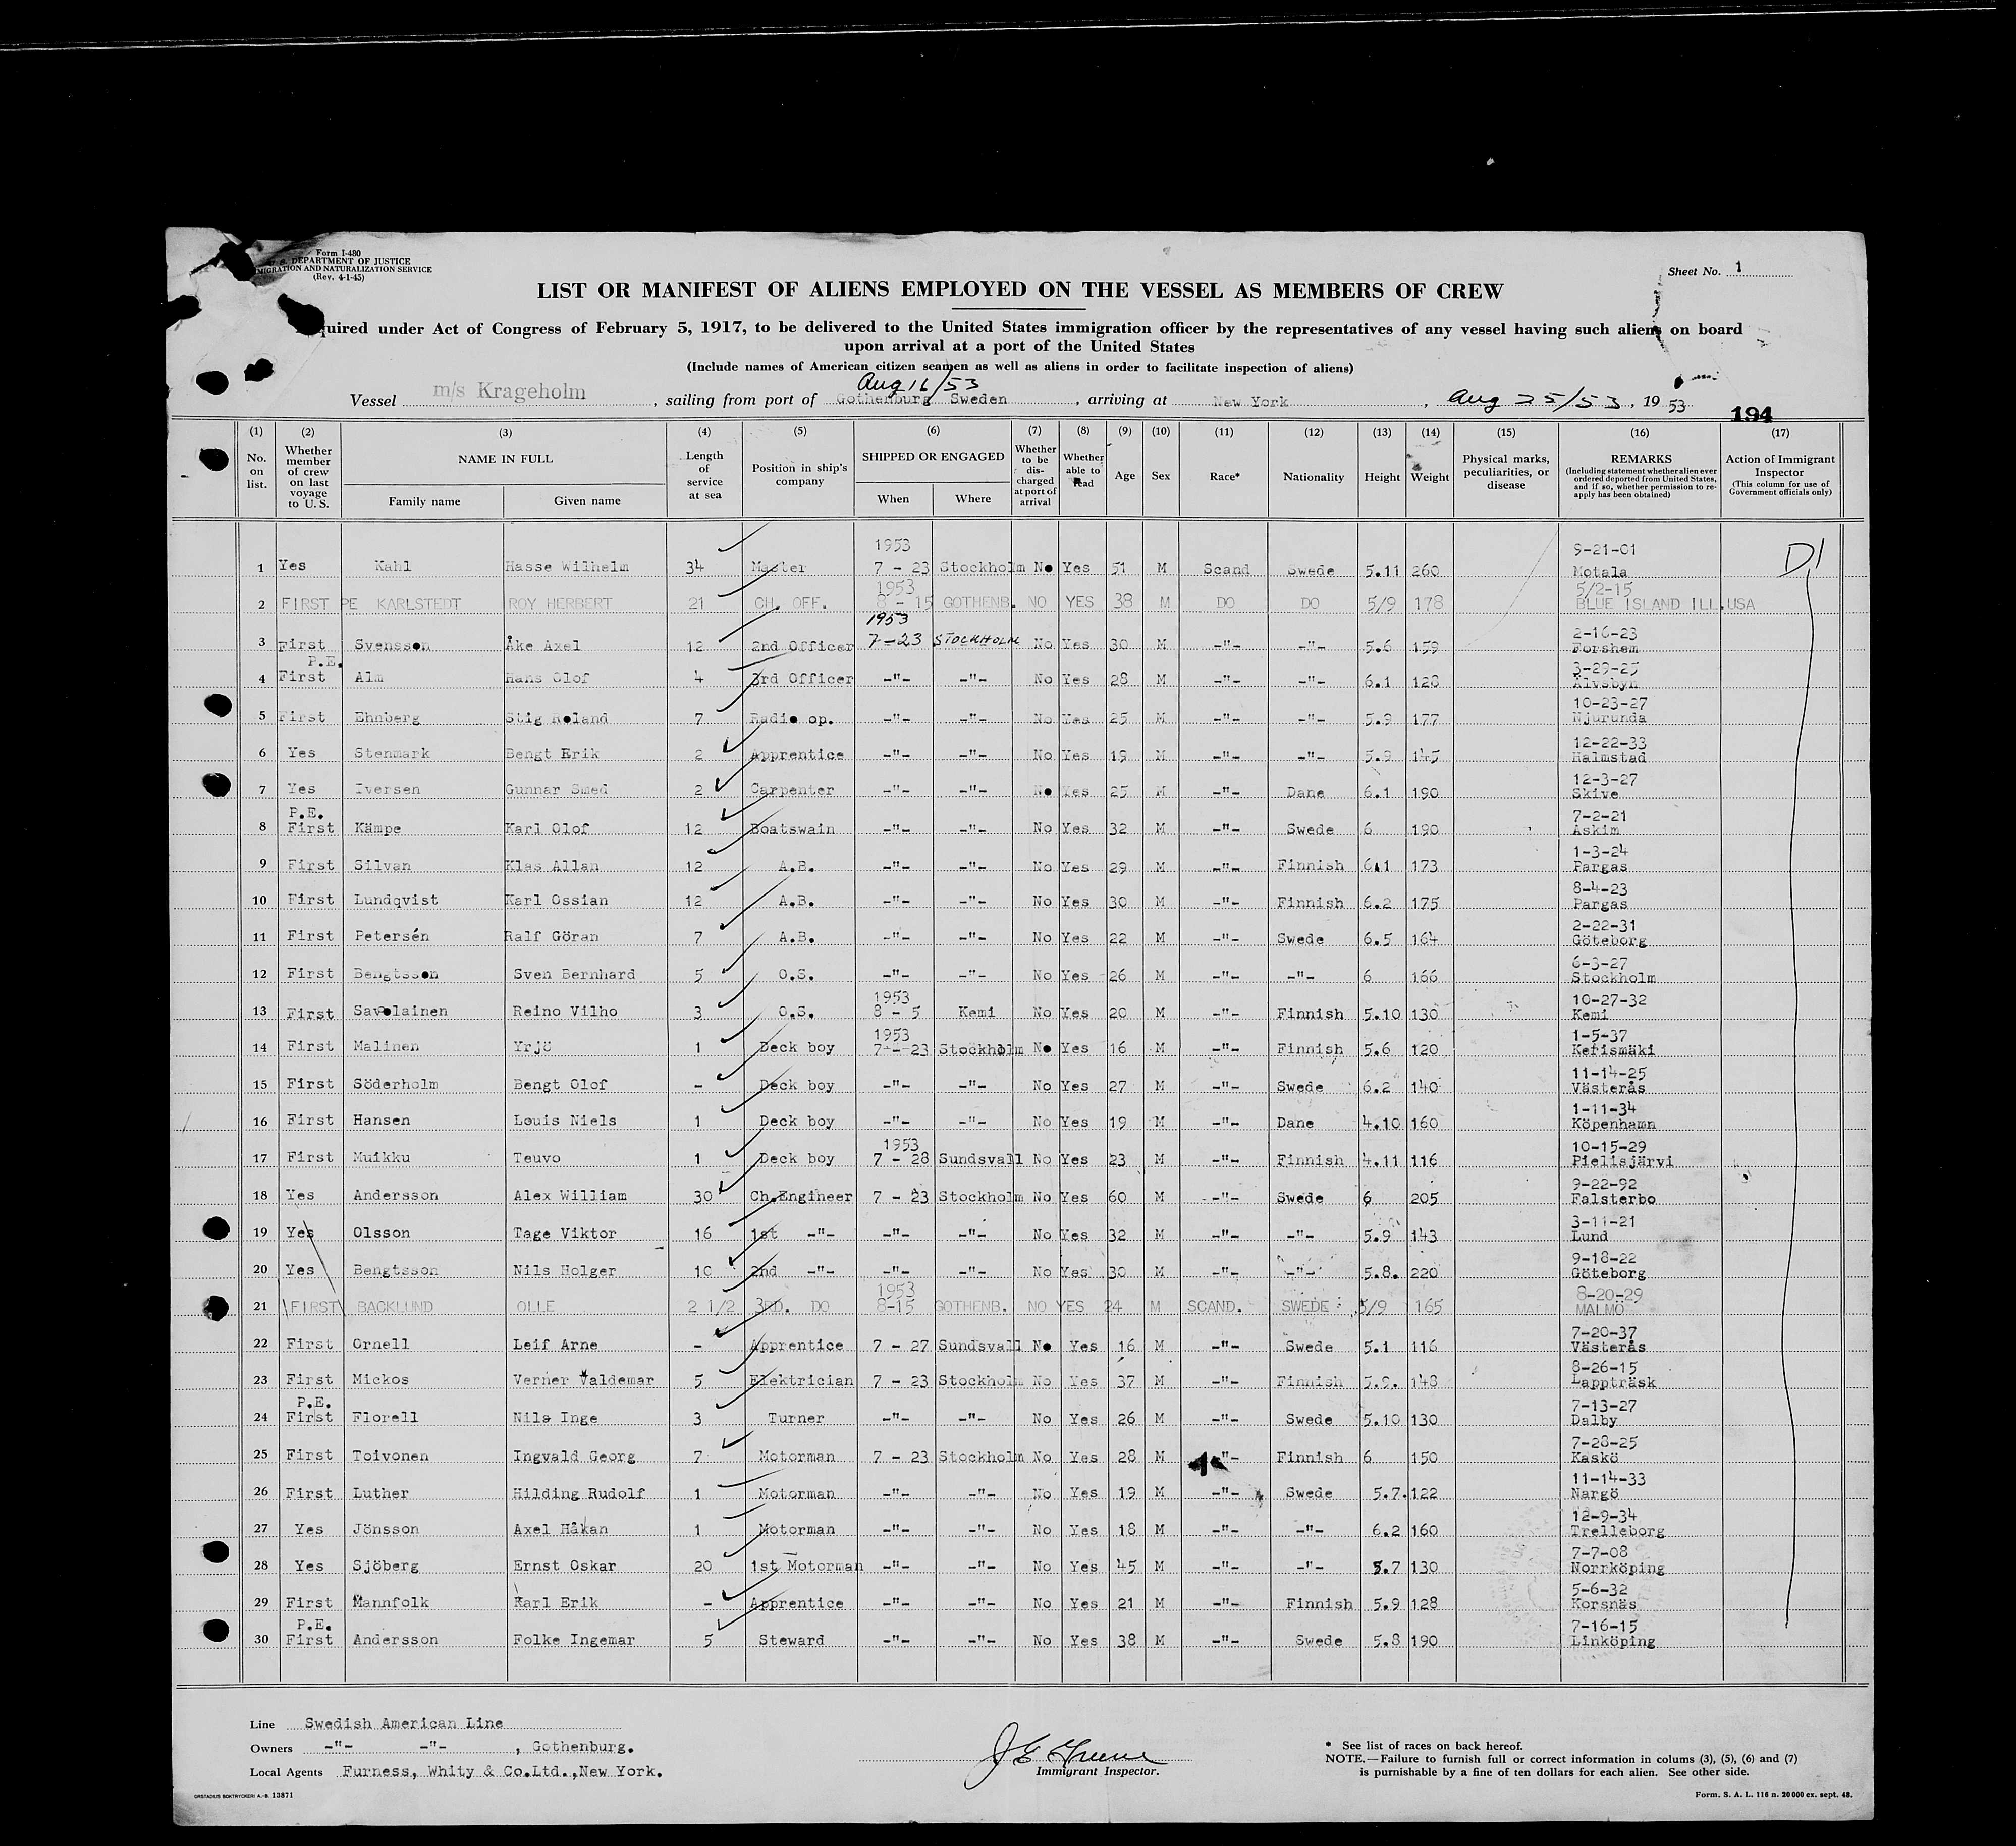 Form I-480
DEPARTMENT OF JUSTICE
IMMIGRATION AND NATURALIZATION SERVICE
(Rev. 4-1-45)
Sheet No. 1
LIST OR MANIFEST OF ALIENS EMPLOYED ON THE VESSEL AS MEMBERS OF CREW
quired under Act of Congress of February 5, 1917, to be delivered to the United States immigration officer by the representatives of any vessel having such aliens on board
upon arrival at a port of the United States
(Include names of American citizen seamen as well as aliens in order to facilitate inspection of aliens)
Aug 16/53
Vessel m/s Krageholm, sailing from port of Gothenburg Sweden, arriving at New York, Aug 25/53, 19 53
194
(1) (2) (3) (4) (5) (6) (7) (8) (9) (10) (11) (12) (13) (14) (15) (16) (17)
No. on list. Whether member of crew on last voyage to U. S. NAME IN FULL Family name Given name Length of service at sea Position in ship's company SHIPPED OR ENGAGED When Where Whether to be discharged at port of arrival Whether able to read Age Sex Race* Nationality Height Weight Physical marks, peculiarities, or disease REMARKS (Including statement whether alien ever ordered deported from United States, and if so, whether permission to re-apply has been obtained) Action of Immigrant Inspector (This column for use of Government officials only)
1953 9-21-01
1 Yes Kahl Hasse Wilhelm 34 Master 7 - 23 Stockholm No Yes 51 M Scand Swede 5.11 260 Motala D1
1953 5/2-15
2 FIRST PE KARLSTEDT ROY HERBERT 21 CH. OFF. 8 - 15 GOTHENB. NO YES 38 M DO DO 5/9 178 BLUE ISLAND ILL.USA
1953 2-16-23
3 First Svensson Åke Axel 12 2nd Officer 7-23 STOCKHOLM No Yes 30 M -"- -"- 5.6 159 Forshem
P.E. 3-29-25
4 First Alm Hans Olof 4 3rd Officer -"- -"- No Yes 28 M -"- -"- 6.1 128 Älvsbyn
10-23-27
5 First Ehnberg Stig Roland 7 Radio op. -"- -"- No Yes 25 M -"- -"- 5.9 177 Njurunda
12-22-33
6 Yes Stenmark Bengt Erik 2 Apprentice -"- -"- No Yes 19 M -"- -"- 5.9 145 Halmstad
12-3-27
7 Yes Iversen Gunnar Smed 2 Carpenter -"- -"- No Yes 25 M -"- Dane 6.1 190 Skive
P.E. 7-2-21
8 First Kämpe Karl Olof 12 Boatswain -"- -"- No Yes 32 M -"- Swede 6 190 Askim
1-3-24
9 First Silvan Klas Allan 12 A.B. -"- -"- No Yes 29 M -"- Finnish 6.1 173 Pargas
8-4-23
10 First Lundqvist Karl Ossian 12 A.B. -"- -"- No Yes 30 M -"- Finnish 6.2 175 Pargas
2-22-31
11 First Petersén Ralf Göran 7 A.B. -"- -"- No Yes 22 M -"- Swede 6.5 164 Göteborg
6-3-27
12 First Bengtsson Sven Bernhard 5 O.S. -"- -"- No Yes 26 M -"- -"- 6 166 Stockholm
1953 10-27-32
13 First Savolainen Reino Vilho 3 O.S. 8 - 5 Kemi No Yes 20 M -"- Finnish 5.10 130 Kemi
1953 1-5-37
14 First Malinen Yrjö 1 Deck boy 7 - 23 Stockholm No Yes 16 M -"- Finnish 5.6 120 Kerismäki
11-14-25
15 First Söderholm Bengt Olof - Deck boy -"- -"- No Yes 27 M -"- Swede 6.2 140 Västerås
1-11-34
16 First Hansen Louis Niels 1 Deck boy -"- -"- No Yes 19 M -"- Dane 4.10 160 Köpenhamn
1953 10-15-29
17 First Muikku Teuvo 1 Deck boy 7 - 28 Sundsvall No Yes 23 M -"- Finnish 4.11 116 Pielisjärvi
9-22-92
18 Yes Andersson Alex William 30 Ch.Engineer 7 - 23 Stockholm No Yes 60 M -"- Swede 6 205 Falsterbo
3-11-21
19 Yes Olsson Tage Viktor 16 1st -"- -"- -"- No Yes 32 M -"- -"- 5.9 143 Lund
9-18-22
20 Yes Bengtsson Nils Holger 10 2nd -"- -"- -"- No Yes 30 M -"- -"- 5.8. 220 Göteborg
1953 8-20-29
21 FIRST BACKLUND OLLE 2 1/2 3RD. DO 8-15 GOTHENB. NO YES 24 M SCAND. SWEDE 5/9 165 MALMÖ
7-20-37
22 First Ornell Leif Arne - Apprentice 7 - 27 Sundsvall No Yes 16 M -"- Swede 5.1 116 Västerås
8-26-15
23 First Mickos Verner Valdemar 5 Elektrician 7 - 23 Stockholm No Yes 37 M -"- Finnish 5.9. 148 Lappträsk
P.E. 7-13-27
24 First Florell Nils Inge 3 Turner -"- -"- No Yes 26 M -"- Swede 5.10 130 Dalby
7-28-25
25 First Toivonen Ingvald Georg 7 Motorman 7 - 23 Stockholm No Yes 28 M -"- Finnish 6 150 Kaskö
11-14-33
26 First Luther Hilding Rudolf 1 Motorman -"- -"- No Yes 19 M -"- Swede 5.7. 122 Nargö
12-9-34
27 Yes Jönsson Axel Håkan 1 Motorman -"- -"- No Yes 18 M -"- -"- 6.2 160 Trelleborg
7-7-08
28 Yes Sjöberg Ernst Oskar 20 1st Motorman -"- -"- No Yes 45 M -"- -"- 5.7 130 Norrköping
5-6-32
29 First Mannfolk Karl Erik - Apprentice -"- -"- No Yes 21 M -"- Finnish 5.9 128 Korsnäs
P.E. 7-16-15
30 First Andersson Folke Ingemar 5 Steward -"- -"- No Yes 38 M -"- Swede 5.8 190 Linköping
Line Swedish American Line
Owners -"- -"- , Gothenburg.
Local Agents Furness, Whity & Co.Ltd.,New York.
J E Greene
Immigrant Inspector.
* See list of races on back hereof.
NOTE.—Failure to furnish full or correct information in colums (3), (5), (6) and (7)
is punishable by a fine of ten dollars for each alien. See other side.
ORSTADIUS BOKTRYCKERI A.-B. 13871
Form. S. A. L. 116 n. 20000 ex. sept. 48.